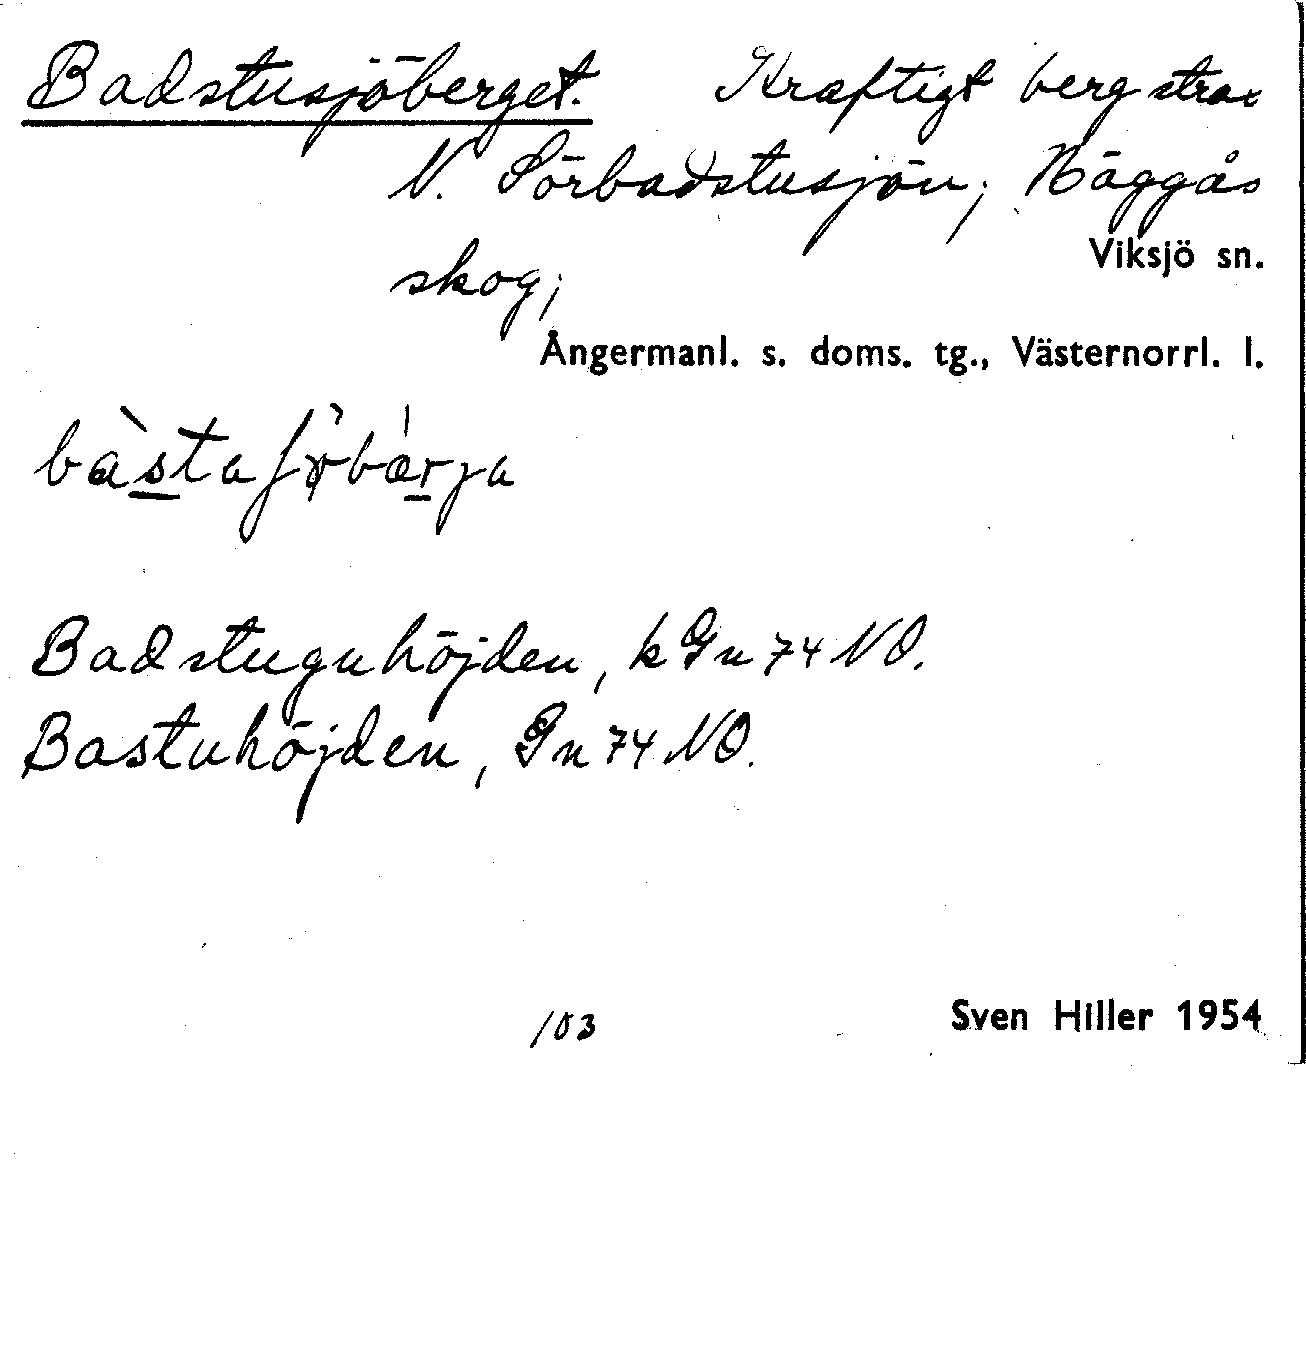 Badstusjöberget. Kraftigt berg strax
N. Sörbadstusjön; Häggås
skog;
Viksjö sn.
Ångermanl. s. doms. tg., Västernorrl. l.
Badstuguhöjden, k Gn 74 NO.
Bastuhöjden, Gn 74 NO.
103
Sven Hiller 1954